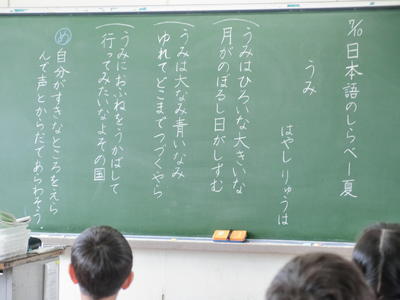 7/10 日本語のしらべー夏
うみ
はやし りゅうは
うみはひろいな大きいな
月がのぼるし日がしずむ
うみは大なみ青いなみ
ゆれてどこまでつづくやら
うみにおふねをうかばして
行ってみたいなよその国
め 自分がすきなところをえら
んで声とからだであらわそう